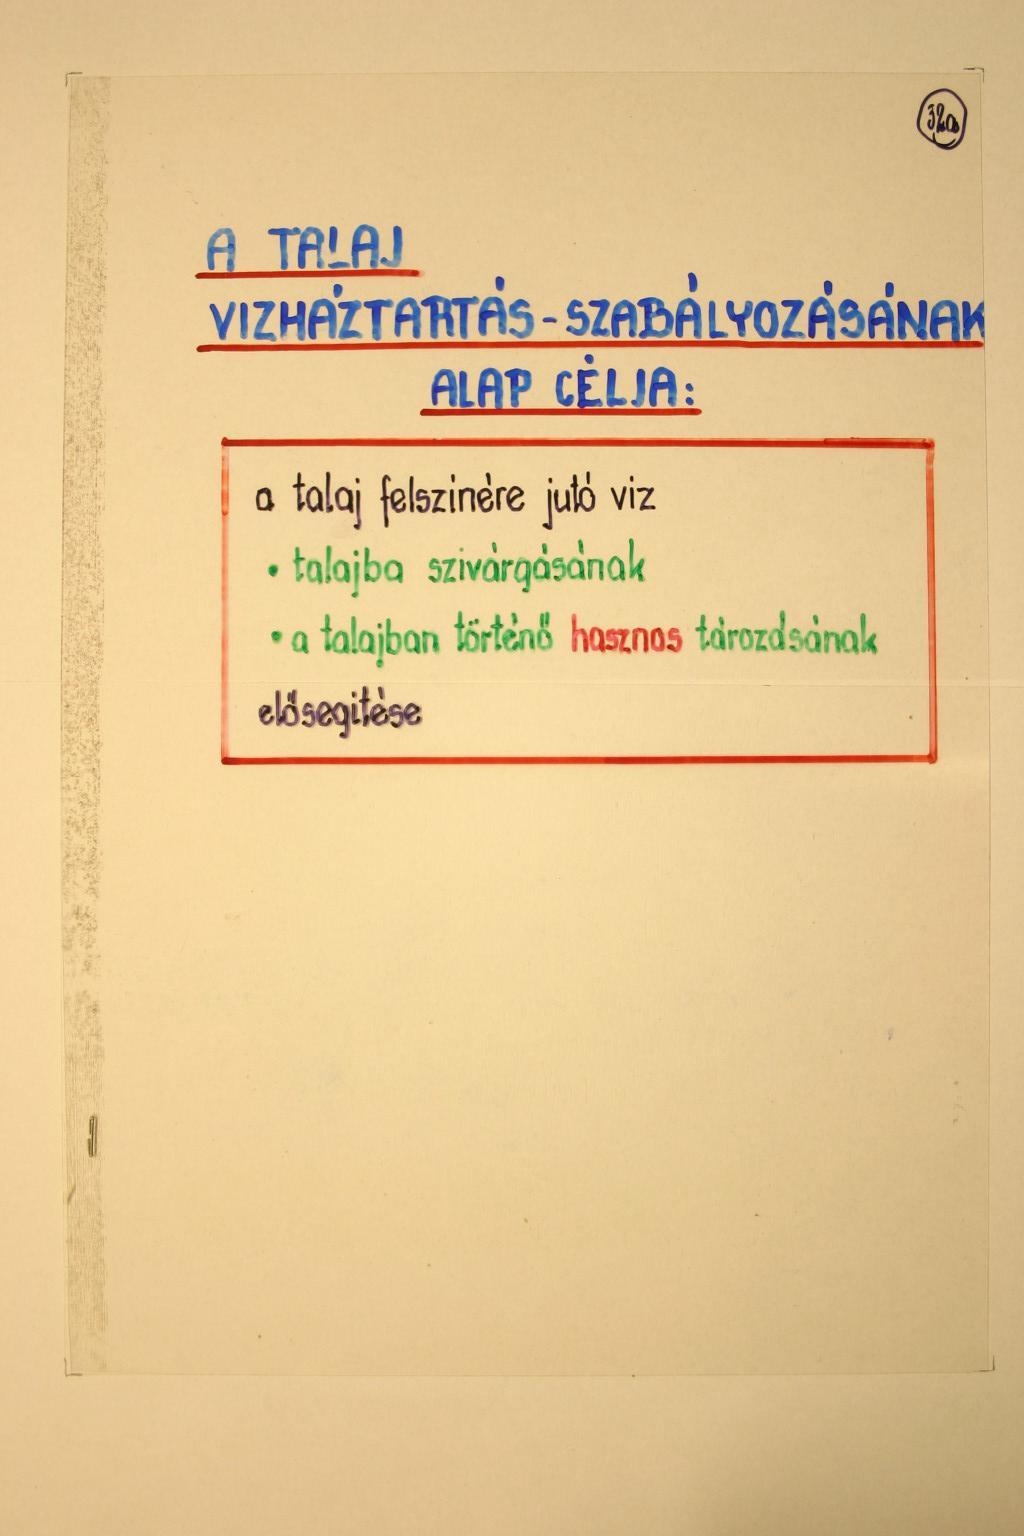 32a
A TALAJ
VIZHÁZTARTÁS-SZABÁLYOZÁSÁNAK
ALAP CÉLJA:
a talaj felszinére jutó viz
• talajba szivárgásának
• a talajban történő hasznos tározásának
elősegitése